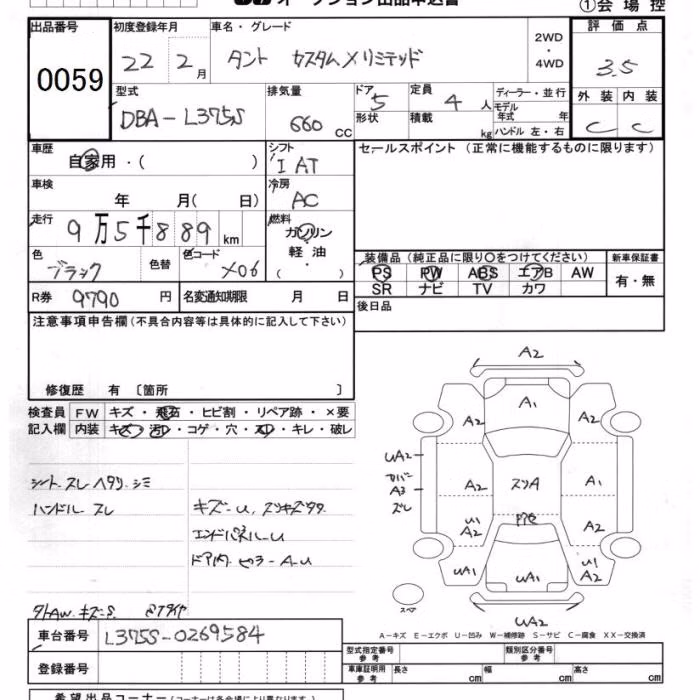 オークション出品申込書
①会場控
出品番号
0059
初度登録年月
22 2月
車名・グレード
タント カスタムXリミテッド
2WD
・
4WD
評価点
3.5
型式
DBA-L375S
排気量
660 CC
ドア
5
形状
定員
4人
積載
kg
ディーラー・並行
モデル
年式 年
ハンドル 左・右
外装 内装
C C
車歴
自家用・( )
シフト
I AT
セールスポイント (正常に機能するものに限ります)
車検
年 月( 日)
冷房
AC
走行
9万5千889km
燃料
ガソリン
・
軽油
( ・ )
色
ブラック
色替
色コード
X06
装備品 (純正品に限り○をつけてください)
PS PW ABS エアB AW
SR ナビ TV カワ
新車保証書
有・無
R券 9790円
名変通知期限 月 日
後日品
注意事項申告欄(不具合内容等は具体的に記入して下さい)
修復歴 有 〔箇所 〕
検査員
記入欄
FW キズ・飛石・ヒビ割・リペア跡・×要
内装 キズ・汚レ・コゲ・穴・スレ・キレ・破レ
シート スレ ヘタリ シミ
ハンドル スレ
キズ-U
エンドパネル-U
ドア内 ピラーA-U
A2
A1
A2
A2
UA2
カバー
A3
ズレ
A2
スリA
A1
U1
A2
A2
UA1
UA1
U1
A2
スペア
UA2
A-キズ E-エクボ U-凹み W-補修跡 S-サビ C-腐食 XX-交換済
車台番号 L375S-0269584
登録番号
型式指定番号
参考
類別区分番号
参考
車庫証明用
参考
長さ cm 幅 cm 高さ cm
希望出品コーナー(コーナーは各会場により異なります)